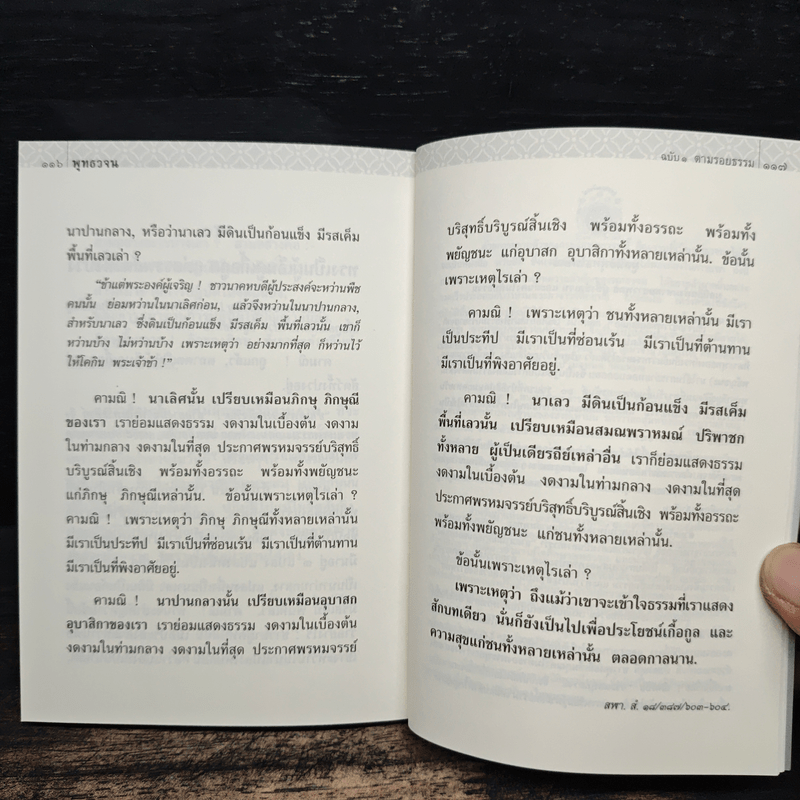 ๑๑๖ พุทธวจน
นาปานกลาง, หรือว่านาเลว มีดินเป็นก้อนแข็ง มีรสเค็ม
พื้นที่เลวเล่า ?
"ข้าแต่พระองค์ผู้เจริญ ! ชาวนาคหบดีผู้ประสงค์จะหว่านพืช
คนนั้น ย่อมหว่านในนาเลิศก่อน, แล้วจึงหว่านในนาปานกลาง,
สำหรับนาเลว ซึ่งดินเป็นก้อนแข็ง มีรสเค็ม พื้นที่เลวนั้น เขาก็
หว่านบ้าง ไม่หว่านบ้าง เพราะเหตุว่า อย่างมากที่สุด ก็หว่านไว้
ให้โคกิน พระเจ้าข้า !"
คามณิ ! นาเลิศนั้น เปรียบเหมือนภิกษุ ภิกษุณี
ของเรา เราย่อมแสดงธรรม งดงามในเบื้องต้น งดงาม
ในท่ามกลาง งดงามในที่สุด ประกาศพรหมจรรย์บริสุทธิ์
บริบูรณ์สิ้นเชิง พร้อมทั้งอรรถะ พร้อมทั้งพยัญชนะ
แก่ภิกษุ ภิกษุณีเหล่านั้น. ข้อนั้นเพราะเหตุไรเล่า ?
คามณิ ! เพราะเหตุว่า ภิกษุ ภิกษุณีทั้งหลายเหล่านั้น
มีเราเป็นประทีป มีเราเป็นที่ซ่อนเร้น มีเราเป็นที่ต้านทาน
มีเราเป็นที่พึงอาศัยอยู่.
คามณิ ! นาปานกลางนั้น เปรียบเหมือนอุบาสก
อุบาสิกาของเรา เราย่อมแสดงธรรม งดงามในเบื้องต้น
งดงามในท่ามกลาง งดงามในที่สุด ประกาศพรหมจรรย์
ฉบับ ๑ ตามรอยธรรม ๑๑๗
บริสุทธิ์บริบูรณ์สิ้นเชิง พร้อมทั้งอรรถะ พร้อมทั้ง
พยัญชนะ แก่อุบาสก อุบาสิกาทั้งหลายเหล่านั้น. ข้อนั้น
เพราะเหตุไรเล่า ?
คามณิ ! เพราะเหตุว่า ชนทั้งหลายเหล่านั้น มีเรา
เป็นประทีป มีเราเป็นที่ซ่อนเร้น มีเราเป็นที่ต้านทาน
มีเราเป็นที่พึงอาศัยอยู่.
คามณิ ! นาเลว มีดินเป็นก้อนแข็ง มีรสเค็ม
พื้นที่เลวนั้น เปรียบเหมือนสมณพราหมณ์ ปริพาชก
ทั้งหลาย ผู้เป็นเดียรถีย์เหล่าอื่น เราก็ย่อมแสดงธรรม
งดงามในเบื้องต้น งดงามในท่ามกลาง งดงามในที่สุด
ประกาศพรหมจรรย์บริสุทธิ์บริบูรณ์สิ้นเชิง พร้อมทั้งอรรถะ
พร้อมทั้งพยัญชนะ แก่ชนทั้งหลายเหล่านั้น.
ข้อนั้นเพราะเหตุไรเล่า ?
เพราะเหตุว่า ถึงแม้ว่าเขาจะเข้าใจธรรมที่เราแสดง
สักบทเดียว นั่นก็ยังเป็นไปเพื่อประโยชน์เกื้อกูล และ
ความสุขแก่ชนทั้งหลายเหล่านั้น ตลอดกาลนาน.
สฬา. สํ. ๑๘/๓๘๗/๖๐๓-๖๐๔.